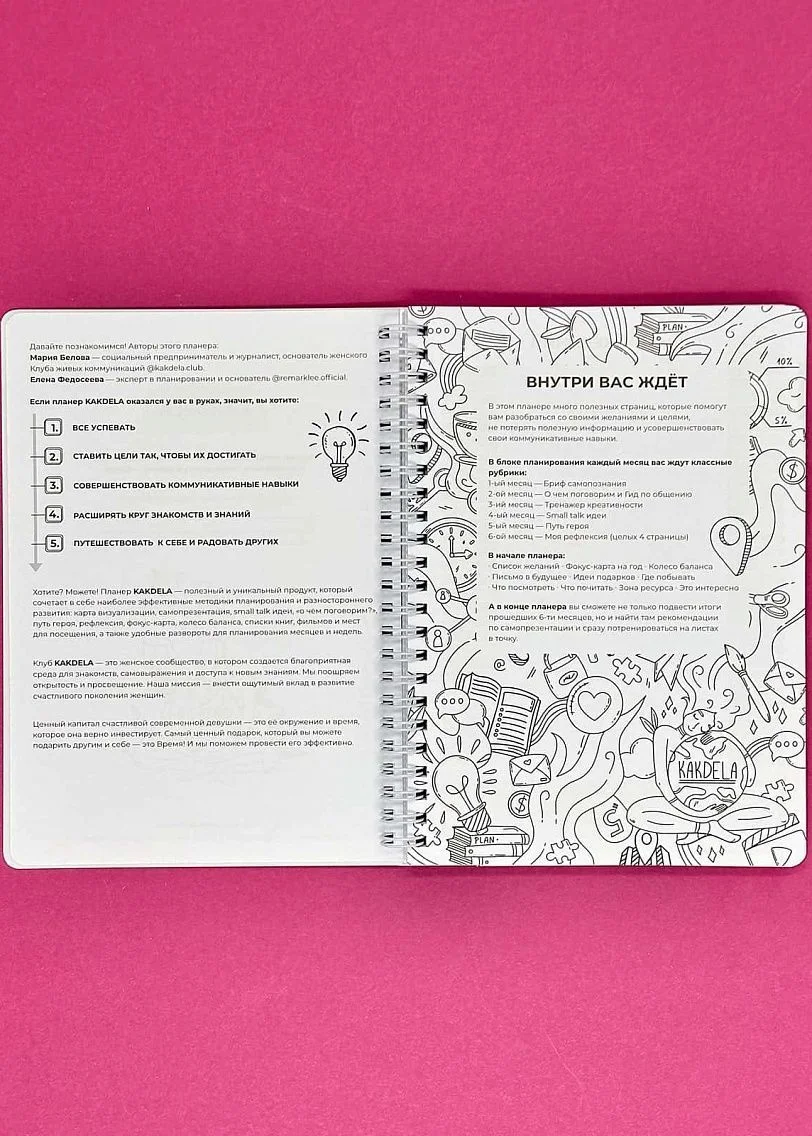 Давайте познакомимся! Авторы этого планера:
Мария Белова — социальный предприниматель и журналист, основатель женского
Клуба живых коммуникаций @kakdela.club.
Елена Федосеева — эксперт в планировании и основатель @remarklee.official.
Если планер KAKDELA оказался у вас в руках, значит, вы хотите:
1. ВСЕ УСПЕВАТЬ
2. СТАВИТЬ ЦЕЛИ ТАК, ЧТОБЫ ИХ ДОСТИГАТЬ
3. СОВЕРШЕНСТВОВАТЬ КОММУНИКАТИВНЫЕ НАВЫКИ
4. РАСШИРЯТЬ КРУГ ЗНАКОМСТВ И ЗНАНИЙ
5. ПУТЕШЕСТВОВАТЬ К СЕБЕ И РАДОВАТЬ ДРУГИХ
Хотите? Можете! Планер KAKDELA — полезный и уникальный продукт, который
сочетает в себе наиболее эффективные методики планирования и разностороннего
развития: карта визуализации, самопрезентация, small talk идеи, «о чем поговорим?»,
путь героя, рефлексия, фокус-карта, колесо баланса, списки книг, фильмов и мест
для посещения, а также удобные развороты для планирования месяцев и недель.
Клуб KAKDELA — это женское сообщество, в котором создается благоприятная
среда для знакомств, самовыражения и доступа к новым знаниям. Мы поощряем
открытость и просвещение. Наша миссия — внести ощутимый вклад в развитие
счастливого поколения женщин.
Ценный капитал счастливой современной девушки — это её окружение и время,
которое она верно инвестирует. Самый ценный подарок, который вы можете
подарить другим и себе — это Время! И мы поможем провести его эффективно.
PLAN
10%
5%
ВНУТРИ ВАС ЖДЁТ
В этом планере много полезных страниц, которые помогут
вам разобраться со своими желаниями и целями,
не потерять полезную информацию и усовершенствовать
свои коммуникативные навыки.
В блоке планирования каждый месяц вас ждут классные
рубрики:
1-ый месяц — Бриф самопознания
2-ой месяц — О чем поговорим и Гид по общению
3-ий месяц — Тренажер креативности
4-ый месяц — Small talk идеи
5-ый месяц — Путь героя
6-ой месяц — Моя рефлексия (целых 4 страницы)
В начале планера:
· Список желаний · Фокус-карта на год · Колесо баланса
· Письмо в будущее · Идеи подарков · Где побывать
· Что посмотреть · Что почитать · Зона ресурса · Это интересно
А в конце планера вы сможете не только подвести итоги
прошедших 6-ти месяцев, но и найти там рекомендации
по самопрезентации и сразу потренироваться на листах
в точку.
KAKDELA
PLAN